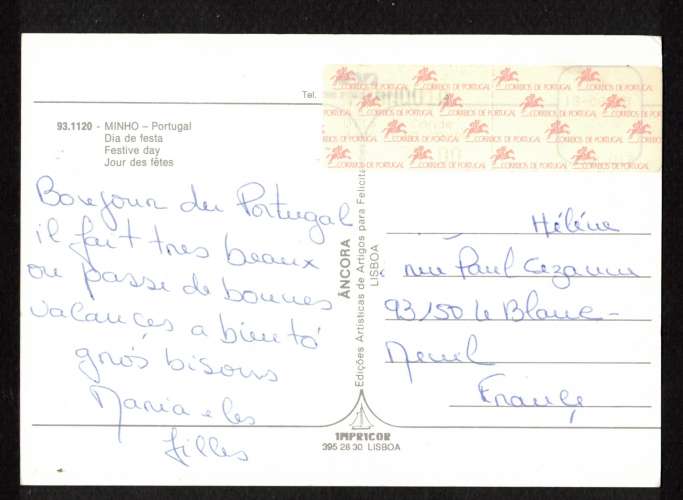 Tel.
93.1120 - MINHO – Portugal
Dia de festa
Festive day
Jour des fêtes
Bonjour du Portugal
il fait tres beaux
on passe de bonnes
vacances a biento
gros bisous
Maria e les
filles
ÂNCORA
Edições Artísticas de Artigos para Felicita
LISBOA
IMPRICOR
395 28 30 LISBOA
CORREIOS DE PORTUGAL CORREIOS DE PORTUGAL CORREIOS DE PORTUGAL CORREIOS DE PORTUGAL
CORREIOS DE PORTUGAL CORREIOS DE PORTUGAL CORREIOS DE PORTUGAL
CORREIOS DE PORTUGAL CORREIOS DE PORTUGAL CORREIOS DE PORTUGAL
CORREIOS DE PORTUGAL CORREIOS DE PORTUGAL CORREIOS DE PORTUGAL CORREIOS DE PORTUGAL
Héléne
rue Paul Cezanne
93150 le Blanc-
Menil
France